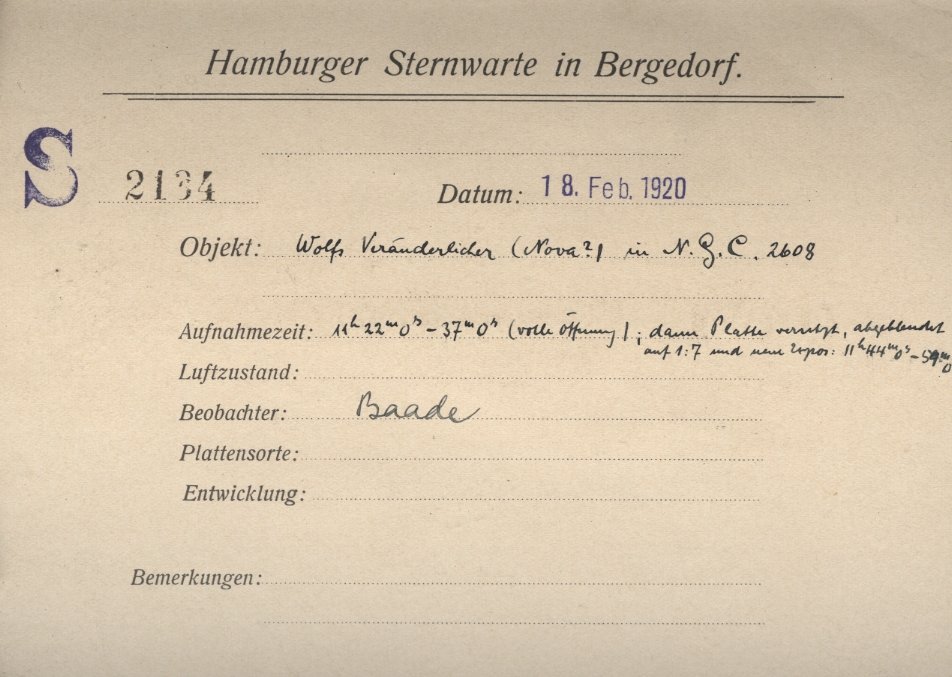 Hamburger Sternwarte in Bergedorf.
S 2134 Datum: 18. Feb. 1920
Objekt: Wolfs Veränderlicher (Nova?) in N.G.C. 2608
Aufnahmezeit: 11h 22m 0s – 37m 0s (volle Öffnung); dann Platte versetzt, abgeblendet
auf 1:7 und neue Expos: 11h 44m 0s – 59m 0
Luftzustand:
Beobachter: Baade
Plattensorte:
Entwicklung:
Bemerkungen: